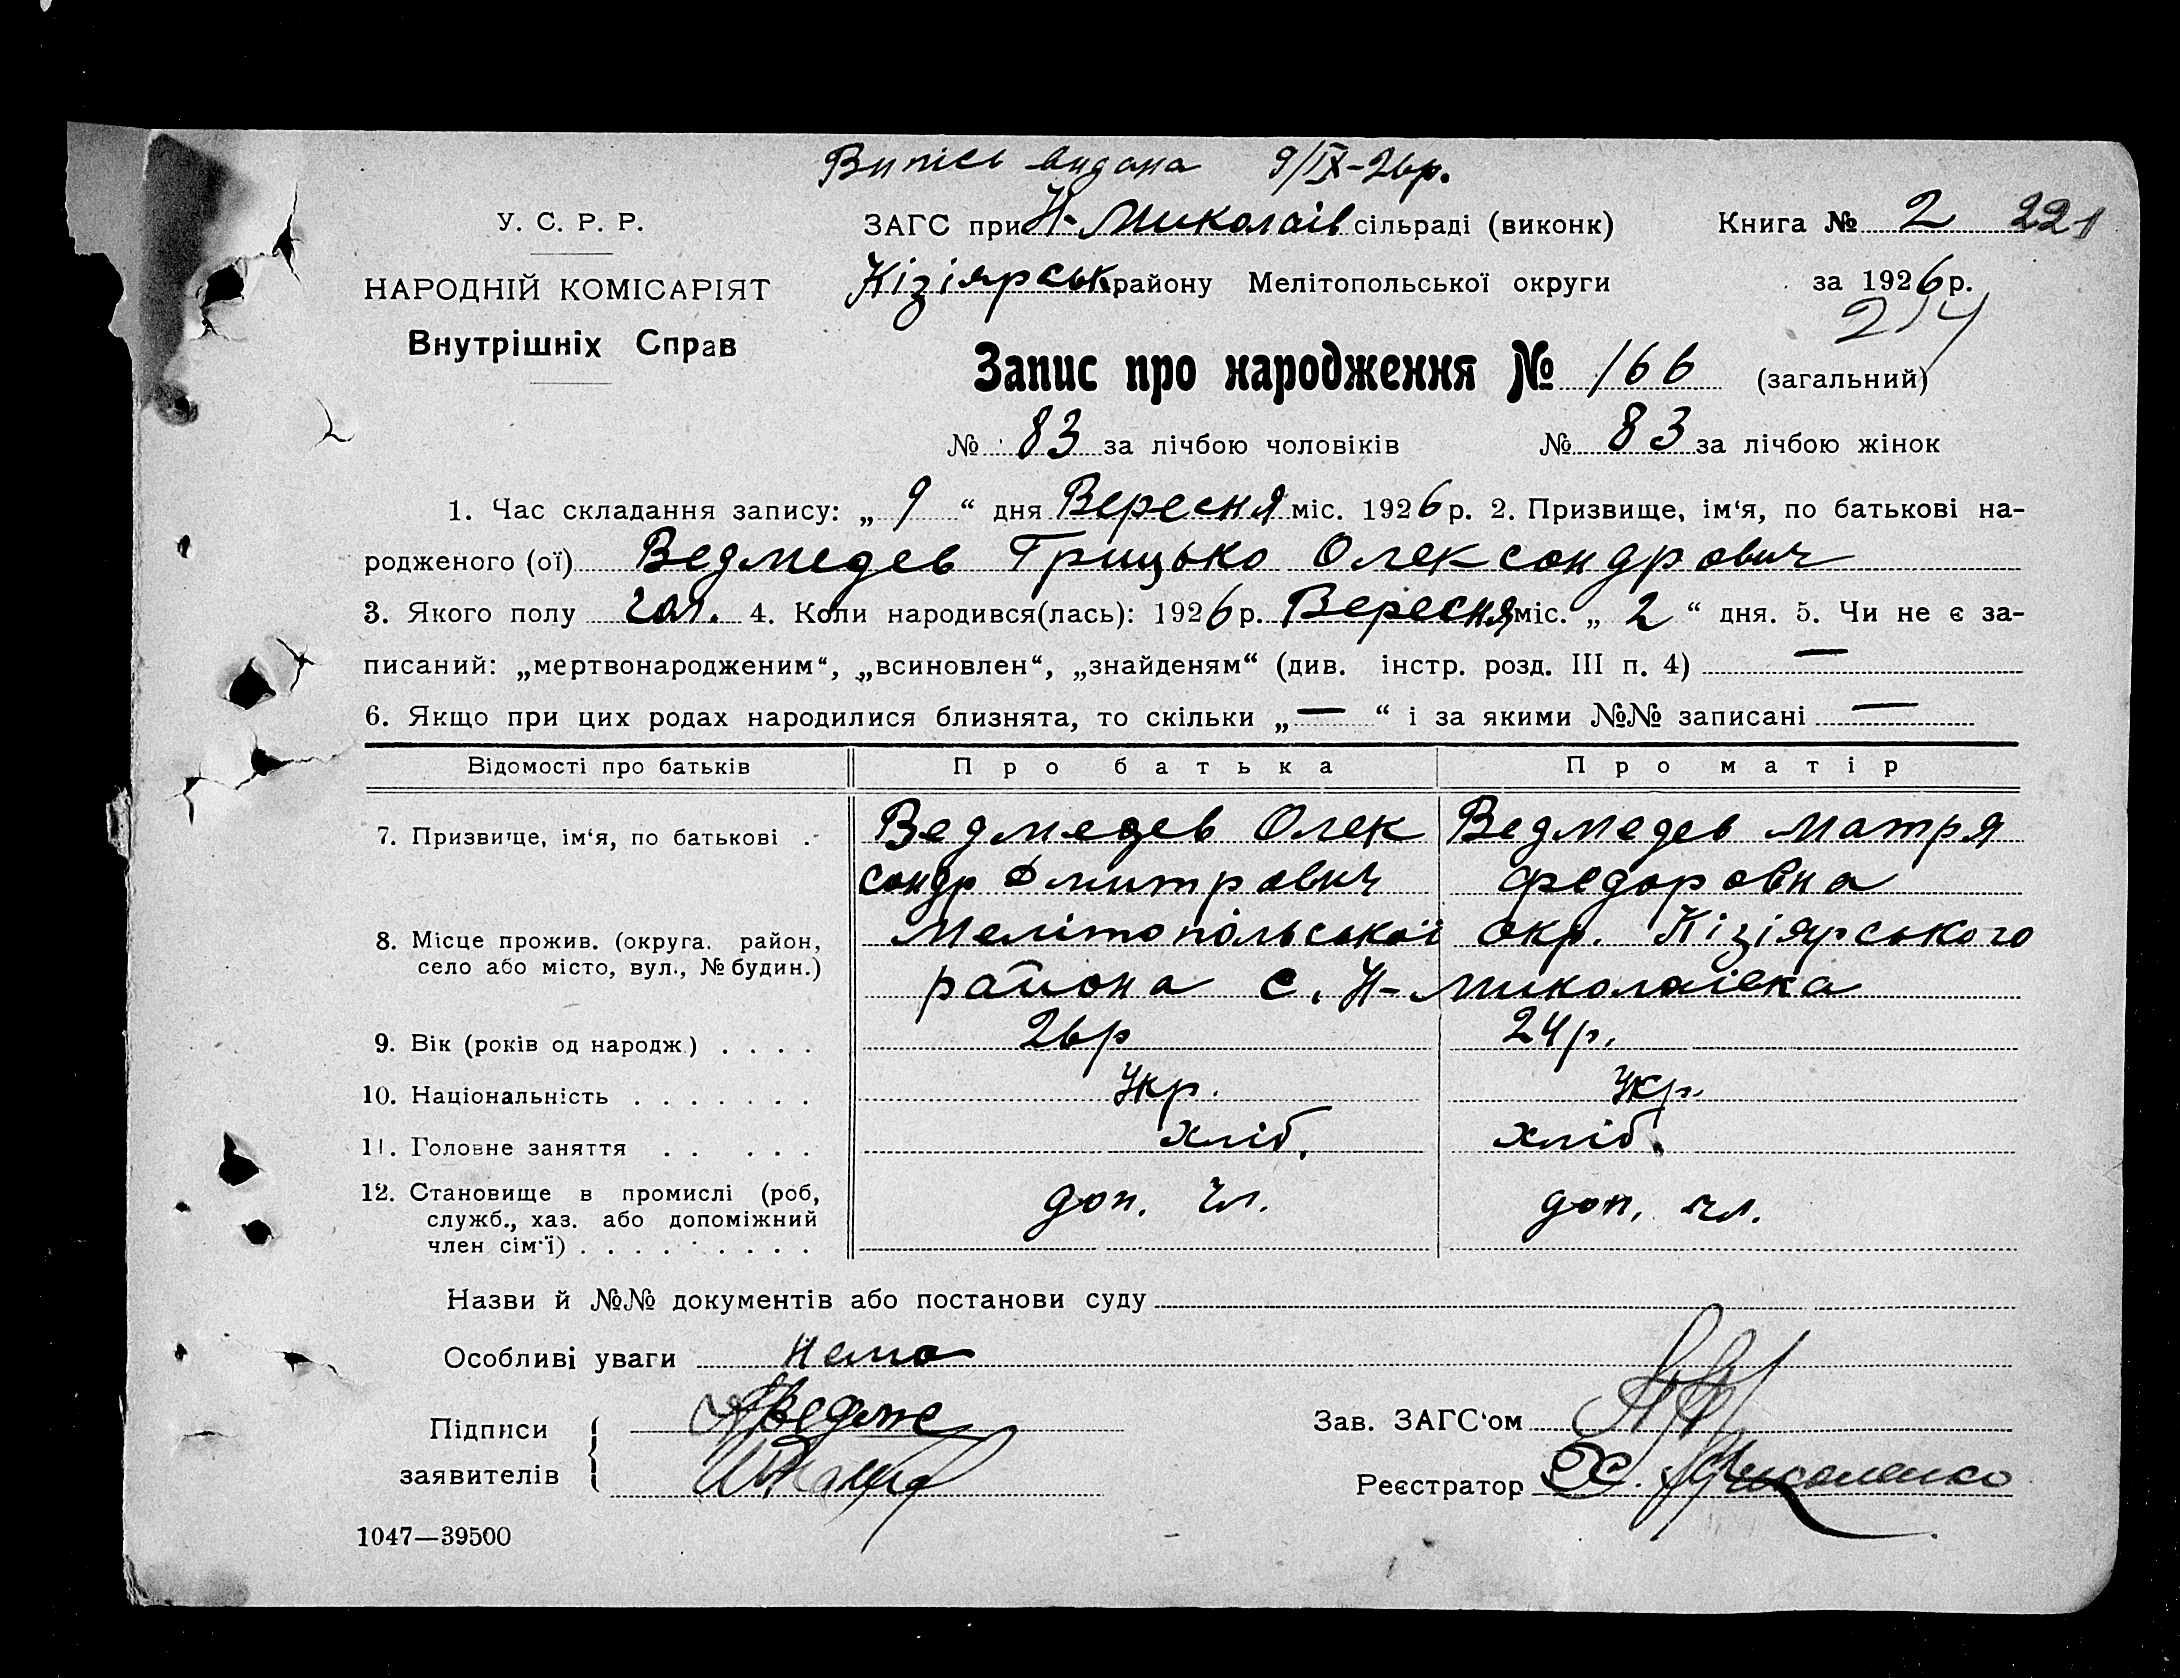 Випісь видана 9/IX-26р.
У. С. Р. Р.
НАРОДНІЙ КОМІСАРІЯТ
Внутрішніх Справ
ЗАГС при Н-Миколаів сільраді (виконк)
Кізіярськ району Мелітопольської округи
Книга № 2 221
за 1926 р.
214
Запис про народження № 166 (загальний)
№ 83 за лічбою чоловіків № 83 за лічбою жінок
1. Час складання запису: „ 9 “ дня Вересня міс. 1926 р. 2. Призвище, ім‘я, по батькові на-
родженого (ої) Ведмедев Грицько Олександрович
3. Якого полу чол. 4. Коли народився(лась): 1926 р. Вересня міс. „ 2 “ дня. 5. Чи не є за-
писаний: „мертвонародженим“, „всиновлен“, „знайденям“ (див. інстр. розд. III п. 4) —
6. Якщо при цих родах народилися близнята, то скільки „ — “ і за якими №№ записані —
Відомості про батьків Про батька Про матір
7. Призвище, ім‘я, по батькові . Ведмедев Олек Ведмедев Матря
сандр Дмитрович Федоровна
8. Місце прожив. (округа. район, Мелітопольської окр. Кізіярського
село або місто, вул., № будин.)
района с. Н-Миколаівка
9. Вік (років од народж.) . . . . 26р 24р.
10. Національність . . . . . . . Укр. Укр.
11. Головне заняття . . . . . хліб. хліб.
12. Становище в промислі (роб, доп. чл. доп. чл.
служб., хаз. або допоміжний
член сім‘ї) . . . . . . . . .
Назви й №№ документів або постанови суду
Особливі уваги Нема
Підписи
заявителів
Ведме
Зав. ЗАГС‘ом
Реєстратор
1047—39500